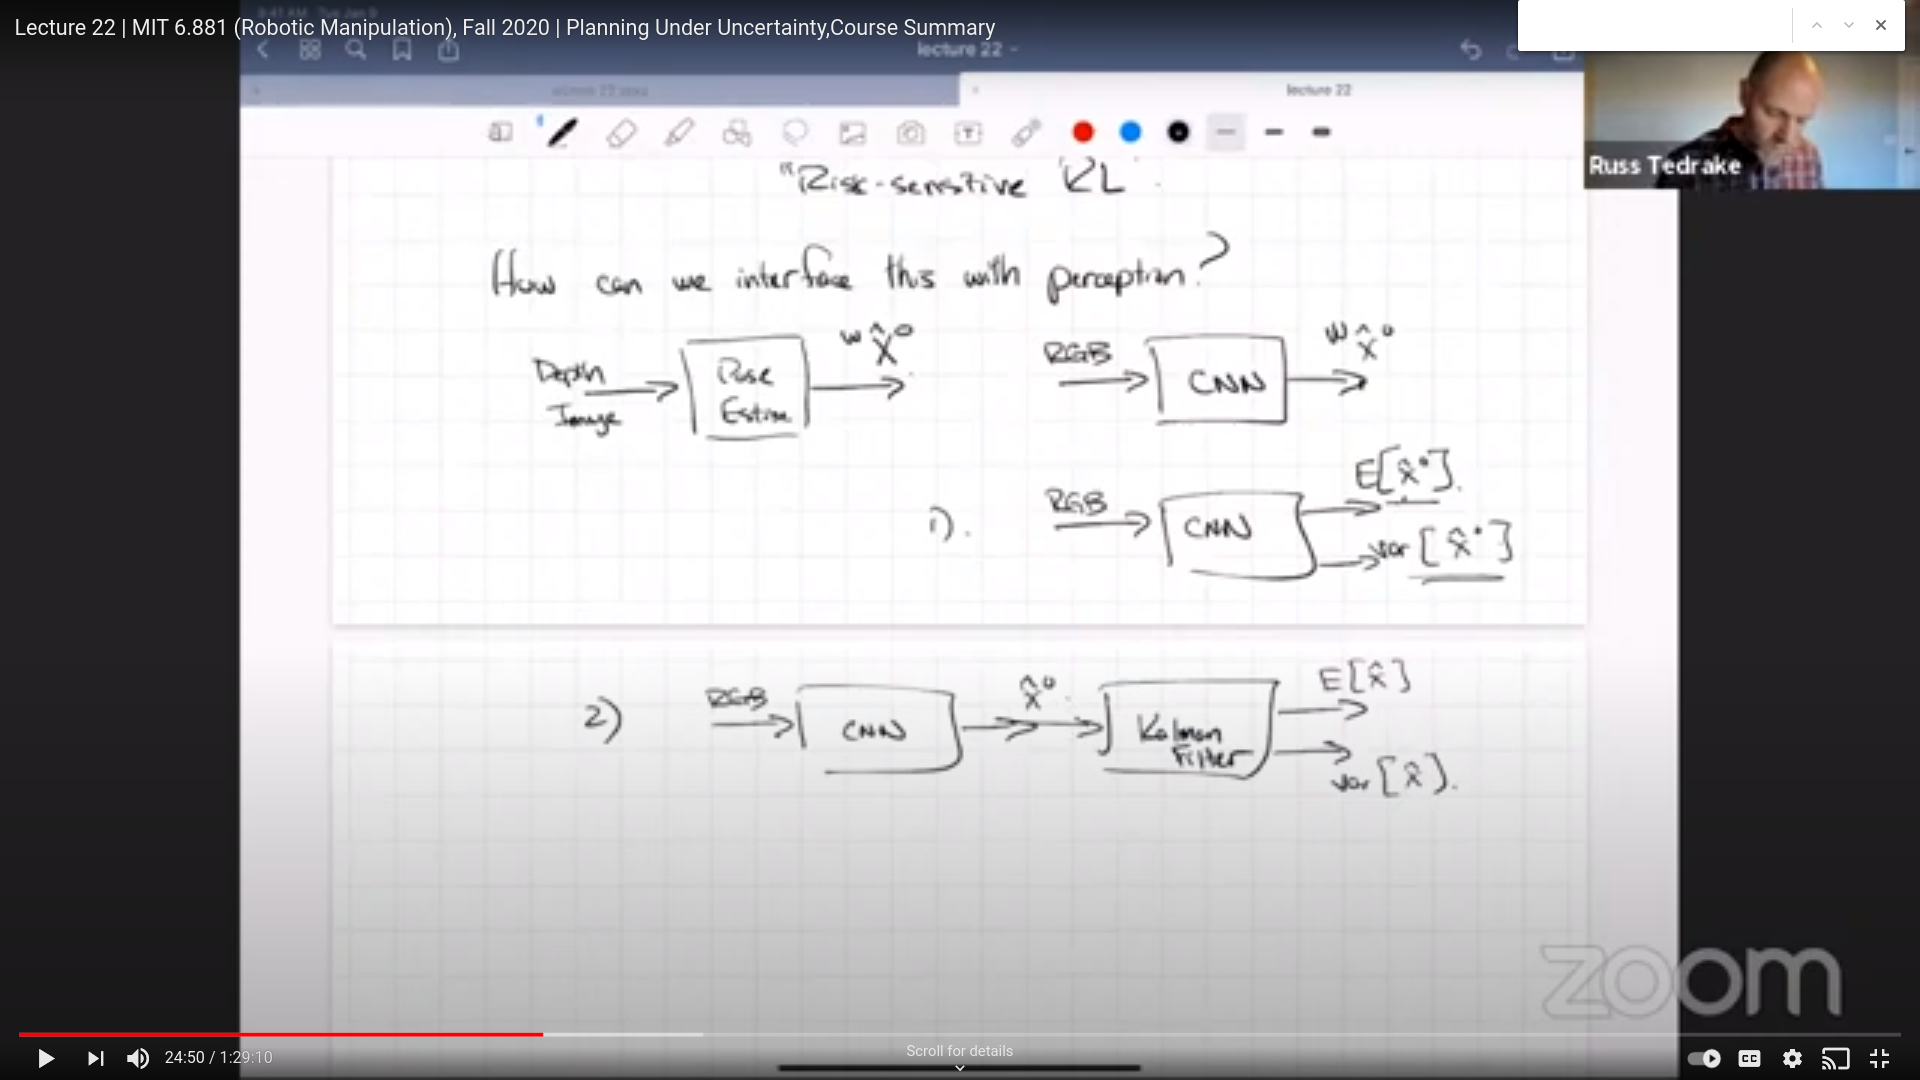 Lecture 22 | MIT 6.881 (Robotic Manipulation), Fall 2020 | Planning Under Uncertainty,Course Summary
lecture 22
lecture 22
Russ Tedrake
"Risk-sensitive RL"
How can we interface this with perception?
Depth Image
Pose Estim
W X̂ O
RGB
CNN
W X̂ O
1).
RGB
CNN
E[X̂°].
var [X̂°]
2)
RGB
CNN
X̂°
Kalman Filter
E[X̂]
var [X̂].
zoom
24:50 / 1:29:10
Scroll for details
CC